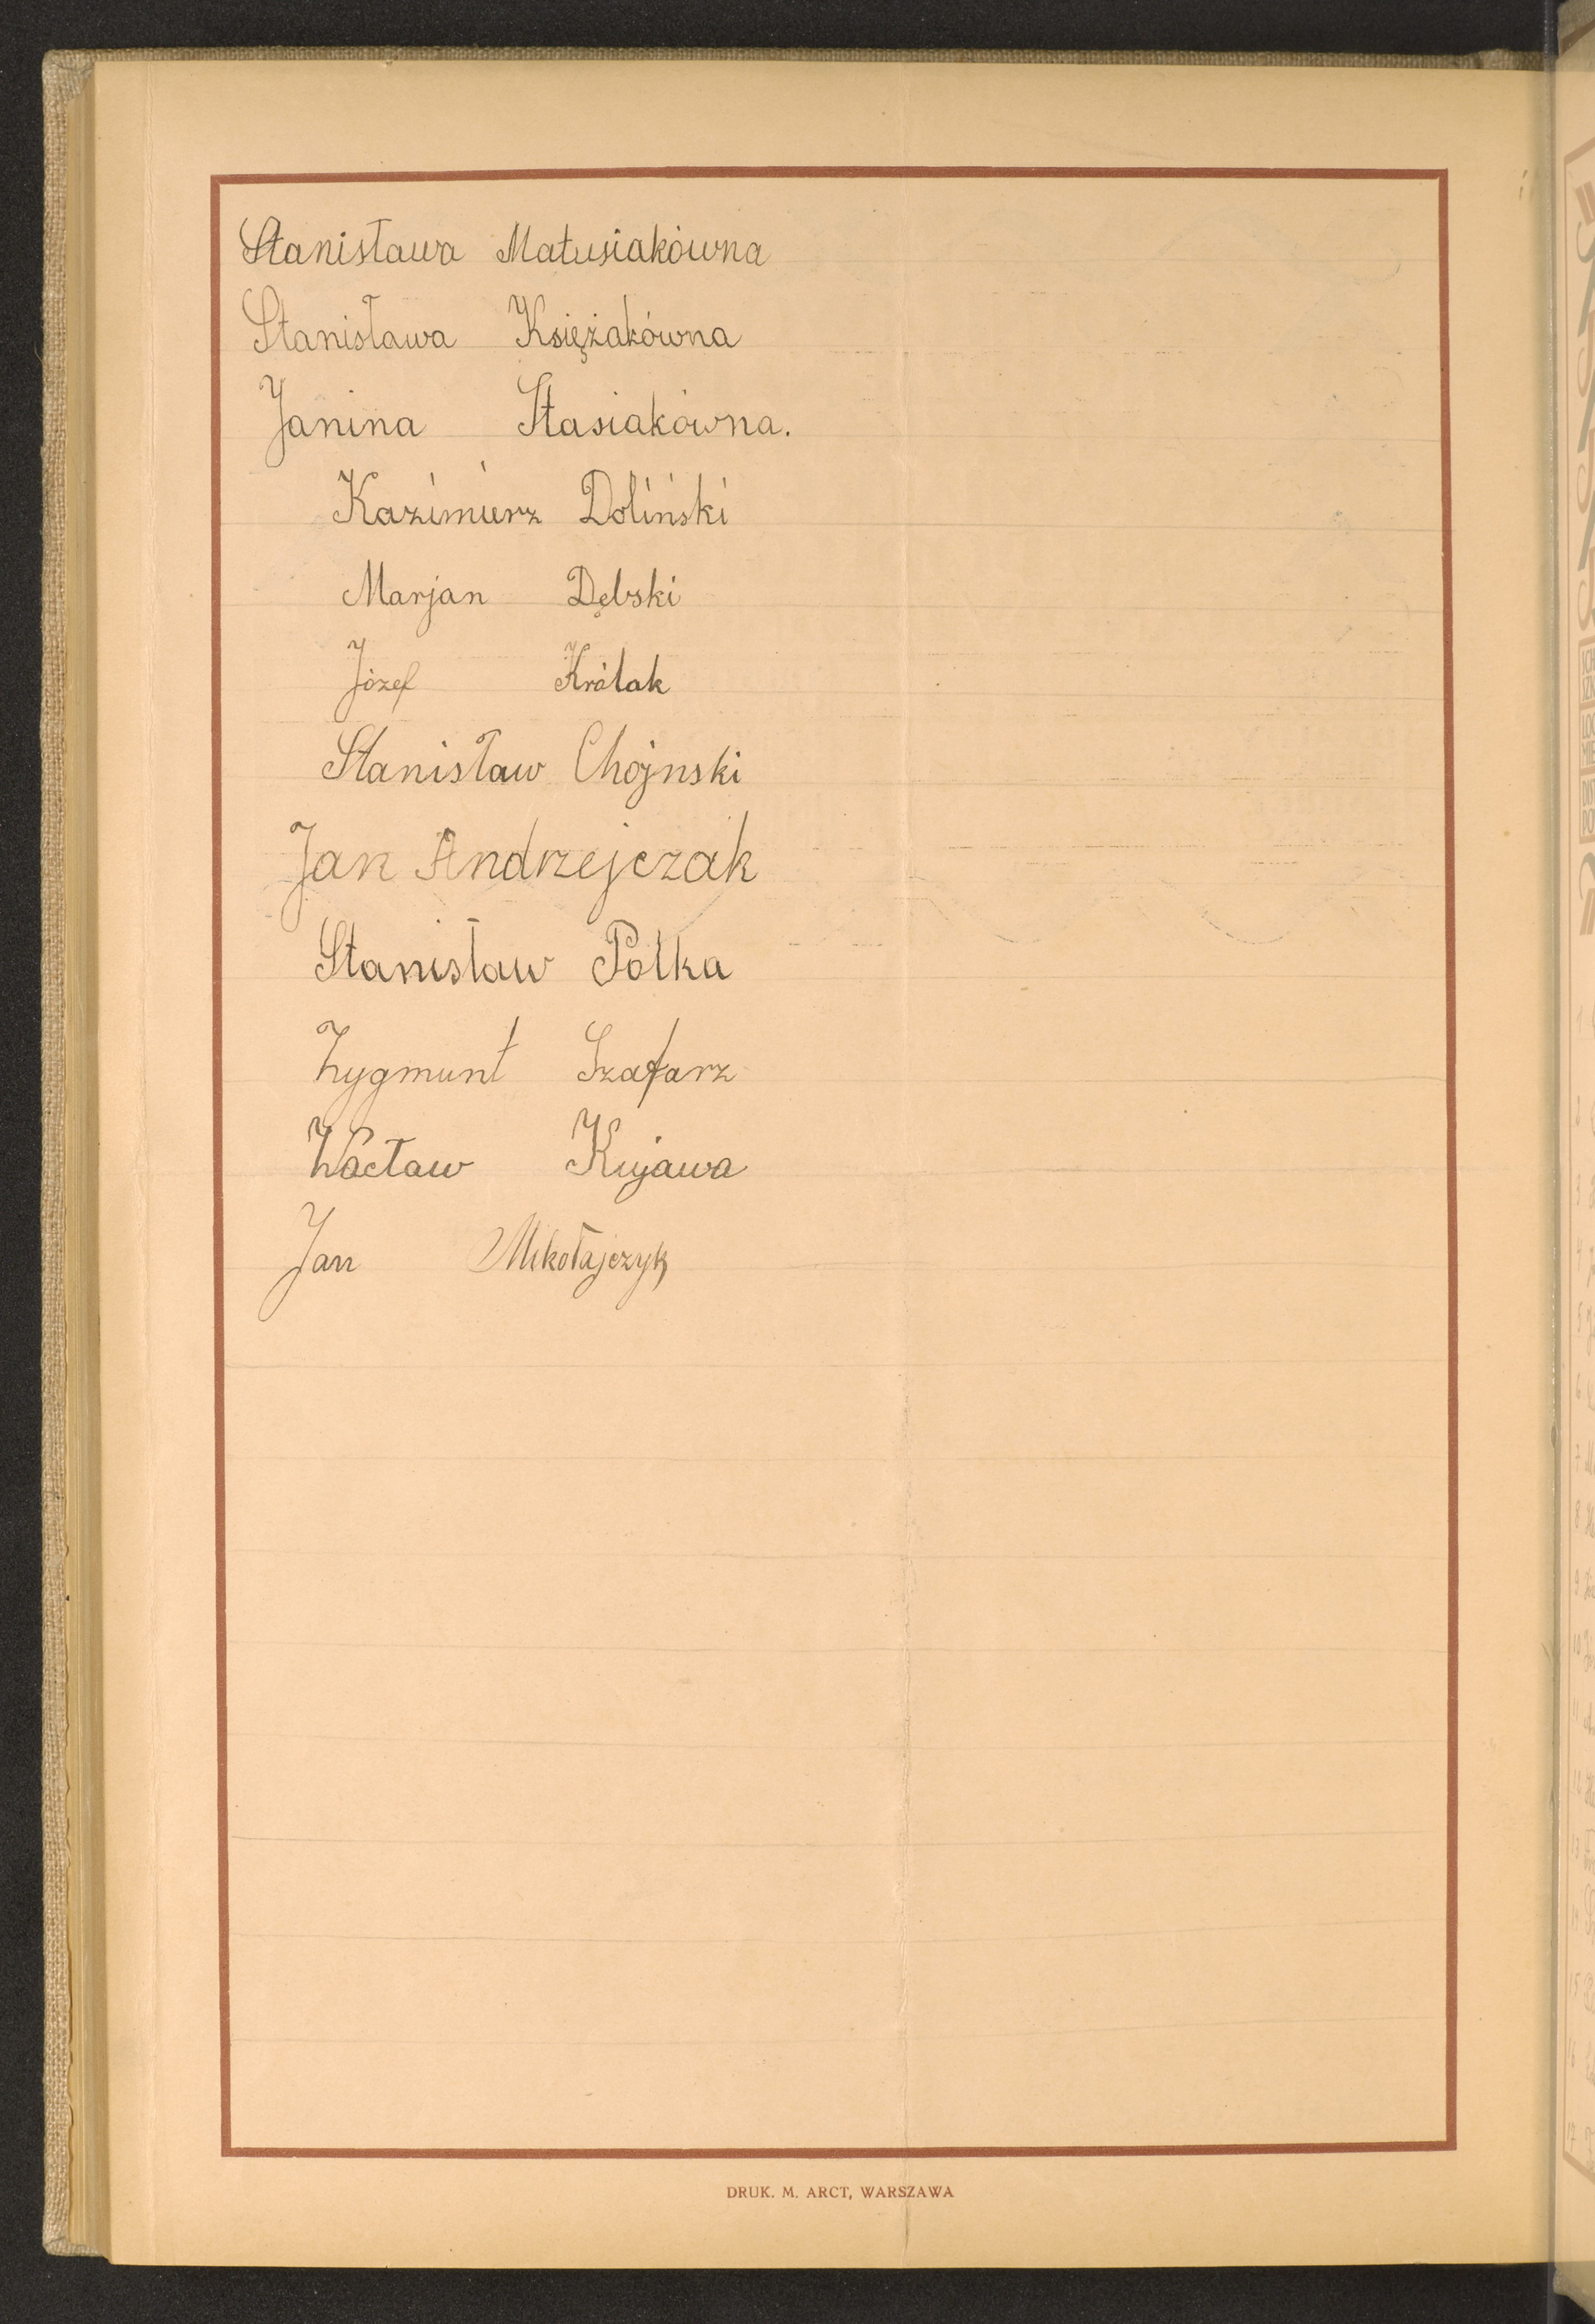 Stanisława Matusiakówna
Stanisława Księżakówna
Janina Stasiakówna.
Kazimierz Doliński
Marjan Dębski
Józef Królak
Stanisław Chojnski
Jan Andrzejczak
Stanisław Polka
Zygmunt Szafarz
Wacław Kujawa
Jan Mikołajczyk
DRUK. M. ARCT, WARSZAWA